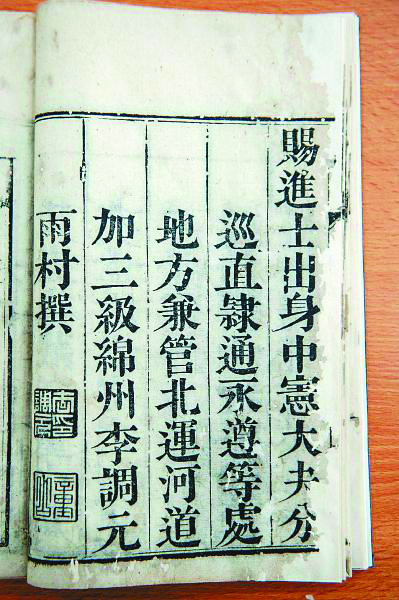 賜進士出身中憲大夫分
巡直隸通永遵等處
地方兼管北運河道
加三級綿州李調元
雨村撰
童山